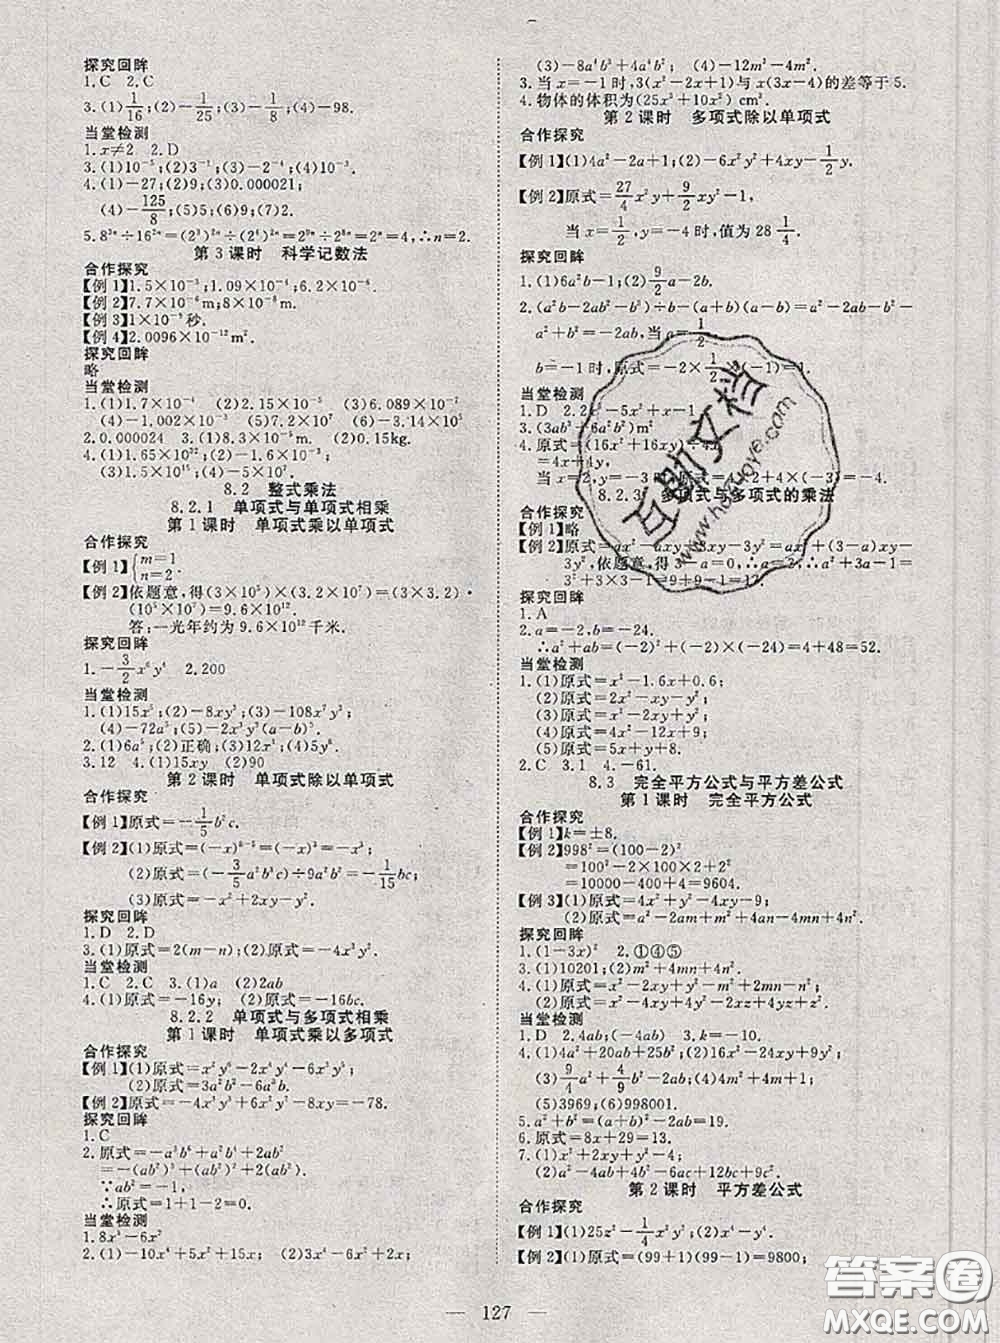 探究回眸
1.C　2.C
3.(1)1/16;(2)-1/25;(3)-1/8;(4)-98.
当堂检测
1.x≠2　2.D
3.(1)10⁻⁵;(2)3⁻¹;(3)
4.(1)-27;(2)9;(3)0.000021;
(4)-125/8;(5)5;(6)9;(7)2.
=4,∴n=2.
第3课时　科学记数法
合作探究
【例1】1.5×10⁻³;1.09×10⁻⁴;6.2×10⁻⁴.
【例2】7.7×10⁻⁶m;8×10⁻⁸m.
【例3】1×10⁻⁹秒.
【例4】2.0096×10⁻¹²m².
探究回眸
略
当堂检测
1.(1)1.7×10⁻⁴　(2)2.15×10⁻⁵　(3)6.089×10⁻²
(4)-1.002×10⁻³　(5)7.2×10⁻⁷　(6)-3.14×10⁻⁵
2.0.000024　3.(1)8.3×10⁻⁸m.　(2)0.15kg.
4.(1)1.65×10²²　(2)
(3)　(4)
8.2　整式乘法
8.2.1　单项式与单项式相乘
第1课时　单项式乘以单项式
合作探究
【例1】{m=1, n=2.
【例2】依题意,得(3×10⁵)×(3.2×10⁷)=(3×3.2)·
(10⁵×10⁷)=9.6×10¹².
答:一光年约为9.6×10¹²千米.
探究回眸
1.-3/2x⁶y⁴　2.200
当堂检测
1.(1)15x⁵;(2)-8xy³;(3)-108x⁷y³;
(4)-72a⁵;(5)-2x³y²(a-b)⁵.
2.(1)6a⁵;(2)正确;(3)12x⁴;(4)5y⁶.
3.12　4.(1)15xy　(2)90
第2课时　单项式除以单项式
合作探究
【例1】原式=-1/5b²c.
【例2】(1)原式=(-x)⁸⁻⁵=(-x)³=-x³;
(2)原式=(-3/5a²b³c)÷9a²b²=-1/15bc;
(3)原式=
探究回眸
1.D　2.D
3.(1)原式=2(m-n);(2)原式=-4x³y.
当堂检测
1.C　2.C　3.(1)a　(2)2ab
4.(1)原式=-16y;(2)原式=-16bc.
8.2.2　单项式与多项式相乘
第1课时　单项式乘以多项式
合作探究
【例1】(1)原式=
(2)原式=3a²b²-6a³b.
【例2】原式=-4x³y²+6x²y²-8xy=-78.
探究回眸
1.C
2.原式=-a³b⁶+a²b⁴+2ab²
=-(ab²)³+(ab²)²+2ab²
∵ab²=-1,
∴原式=1+1-2=0.
当堂检测
1.8x³-6x²
2.(1)-10x⁴+5x²+15x;(2)
(3)-8a⁴b³+4a⁴b²;(4)-12m³-4m².
3.当x=-1时,3(x²-2x+1)与x(3x-4)的差等于5.
4.物体的体积为(25x³+10x²)cm³.
第2课时　多项式除以单项式
合作探究
【例1】(1)4a²-2a+1;(2)-6x²y²+4xy-1/2y.
【例2】原式=27/4x²y+9/2xy²-1,
当x=1/2,y=-4时,值为28 1/4.
探究回眸
1.(1)6a²b-1;(2)9/2a-2b.
2.(a²b-2ab²-b³)÷b-(a+b)(a-b)=a²-2ab-b²-
a²+b²=-2ab,当a=1/2,
b=-1时,原式=-2×1/2×(-1)=1.
当堂检测
1.D　2.2x³-5x²+x
3.(3ab³-6a²b²)m²
4.原式=(16x²+16xy)÷4x
=4x+4y,
8.2.3　多项式与多项式的乘法
合作探究
【例1】略
【例2】原式=ax²-axy+3xy-3y²=ax²+(3-a)xy-
3y²,依题意,得3-a=0,∴a=3.∴a²+3a-1=
3²+3×3-1=9+9-1=17.
探究回眸
1.A
2.a=-2,b=-24.
∴a²+ab=(-2)²+(-2)×(-24)=4+48=52.
当堂检测
1.(1)原式=x²-1.6x+0.6;
(2)原式=2x²-xy-y²;
(3)原式=x³-y³;
(4)原式=4x²-9;
(5)原式=5x+y+6.
2.C　3.1　4.-61.
8.3　完全平方公式与平方差公式
第1课时　完全平方公式
合作探究
【例1】k=±8.
【例2】998²=(100-2)²
=100²-2×100×2+2²
=10000-400+4=9604.
【例3】(1)原式=4x²+y²-4xy-9;
(2)原式=a²-2am+m²-4n².
探究回眸
1.(1-3x)²　2.①④⑤
3.(1)10201;(2)m²+4mn+4n².
4.(1)原式=x²-2xy+y²-m²+2mn-n²;
(2)原式=16x²-y²+4yz-4z².
当堂检测
1.D　2.4ab;(-4ab)　3.k=-10.
4.(1)4a²+20ab+25b²;(2)16x²-24xy+9y²;
(3)9/4a²+4/9b²-2ab;(4)4m²+4m+1;
(5)3969;(6)998001.
5.a²+b²=(a+b)²-2ab=19.
6.原式=8x+29=13.
7.(1)x²+y²+1+2xy-2x-2y;
(2)a²-4ab+4b²-6ac+12bc+9c².
第2课时　平方差公式
合作探究
【例1】(1)25z²-1/4x²y²;(2)x⁴-y⁴.
【例2】(1)原式=(99+1)(99-1)=9800;
— 127 —
互助文档
www.hozuoye.com
答案圈
MXQE.COM